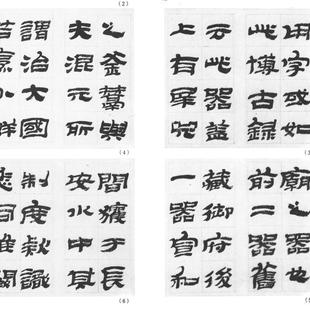 (2)
用字或如
此博古録
云此器蓋
上有
(3
之釜鬵與
夫混元所
謂治大國
若烹小鮮
(4)
廟之器也
前二器舊
藏御府後
一器宣和
間瘞于長
安水中其
制度款識
悉同雖闕
(6)